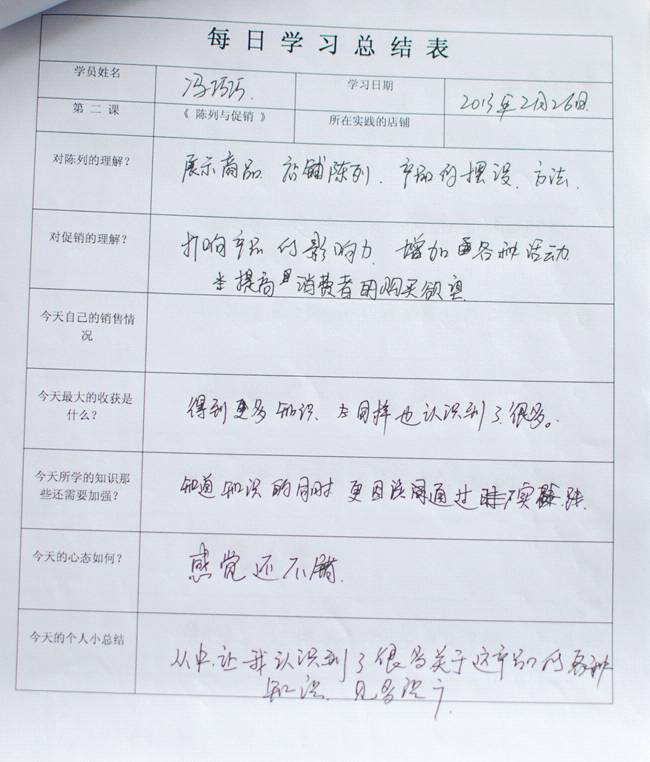 每日学习总结表
学员姓名 冯巧巧. 学习日期 2013年2月26日.
第二课 《 陈列与促销 》 所在实践的店铺
对陈列的理解? 展示商品 店铺陈列. 产品的摆设. 方法.
对促销的理解? 打响产品的影响力. 增加 各种活动
提高 消费者的购买欲望
今天自己的销售情
况
今天最大的收获是
什么? 得到更多知识. 同样也认识到了很多。
今天所学的知识那
些还需要加强? 知道知识的同时 更应该 通过 实践.
今天的心态如何? 感觉还不错.
今天的个人小总结 从中.让我认识到了很多关于这 的各种
知识. 见多识广.